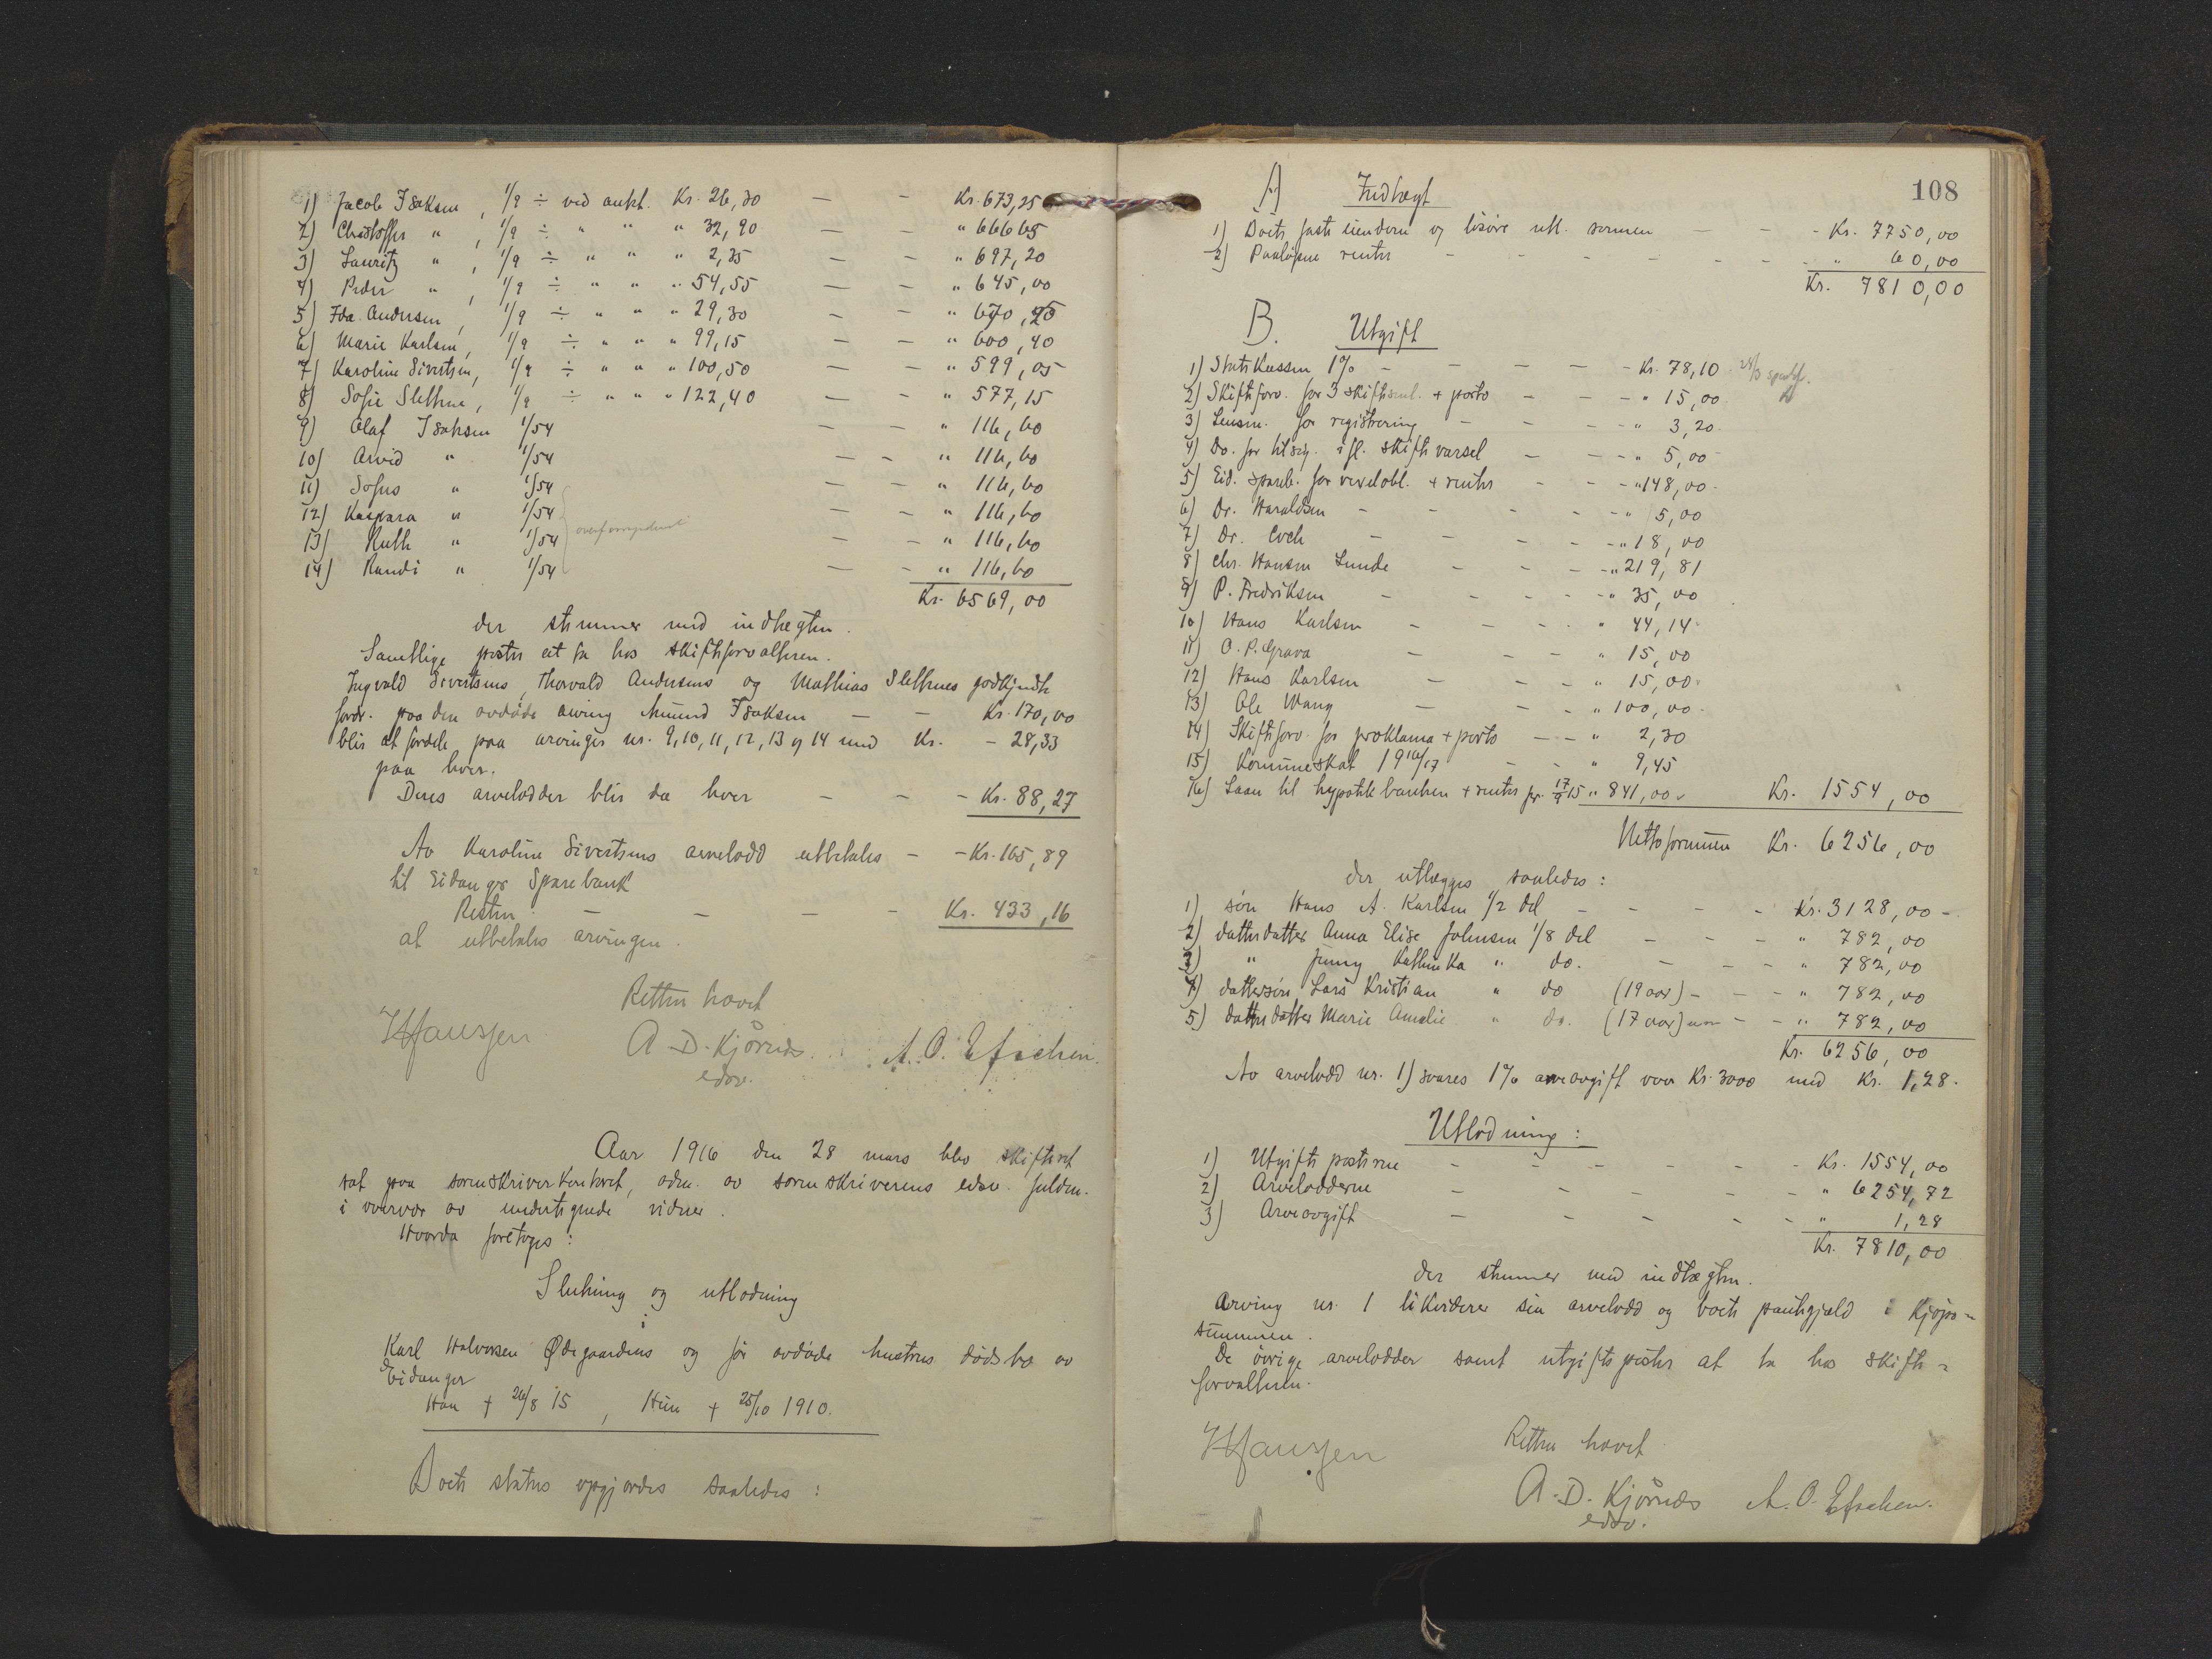 1) Jacob Isaksen, 1/9 ÷ ved aukt. Kr. 26,30 — - Kr. 673,25
2) Christoffer " , 1/9 ÷ " " " 32,90 — - " 666 65
3) Lauritz " , 1/9 ÷ " " " 2,35 — - " 697,20
4) Peder " , 1/9 ÷ " " " 54,55 — - " 645,00
5) Ida Andersen, 1/9 ÷ " " " 29,30 — - " 670,25
6) Marie Karlsen, 1/9 ÷ " " " 99,15 — - " 600,40
7) Karoline Sivertsen, 1/9 ÷ " " " 100,50 — - " 599,05
8) Sofie Slettene, 1/9 ÷ " " " 122,40 — - " 577,15
9) Olaf Isaksen 1/54 — - " 116,60
10) Arvid " 1/54 — - " 116,60
11) Sofus " 1/54 — - " 116,60
12) Kaspara " 1/54 — - " 116,60
13) Ruth " 1/54 — - " 116,60
14) Randi " 1/54 — - " 116,60
Kr. 6569,00
der stemmer med indtægten.
Samtlige poster at ta hos skifteforvalteren.
Ingvald Sivertsens, Thorvald Andersens og Mathias Slettenes godkjendte
fordr. paa den avdøde arving Amund Isaksen — - Kr. 170,00
blir at fordele paa arvinger nr. 9, 10, 11, 12, 13 og 14 med Kr. - 28,33
paa hver.
Deres arvelodder blir da hver - - - Kr. 88,27
Av Karoline Sivertsens arvelodd utbetales - - Kr. 165,89
til Eidanger Sparebank
Resten - - - - Kr. 433,16
at utbetales arvingen.
Retten hævet
H Hanssen A. D. Kjørnæs. A. O. Efschen.
edsv.
Aar 1916 den 28 mars blev skifteret
sat paa sorenskriverkontoret, adm. av sorenskriverens edsv. fuldm.
i overvær av undertegnede vidner.
Hvorda foretoges:
Slutning og utlodning
i
Karl Halvorsen Ødegaardens og før avdøde hustrus dødsbo av
Eidanger
Han † 26/8 15, Hun † 25/10 1910.
Boets status opgjordes saaledes:
108
A) Indtægt
1) Boets faste eiendom og løsøre utl. sønnen - - - Kr. 7750,00
2) Paaløpne renter - - - - - " 60,00
Kr. 7810,00
B. Utgift
1) Statskassen 1% - - - - Kr. 78,10
2) Skifteforv. for 3 skiftesaml. + porto - - - " 15,00
3) Lensm. for registrering - - - " 3,20
4) Do. for tilsig. ifl. skiftevarsel - - - " 5,00
5) Eid. spareb. for vexelobl. + renter - - - " 148,00
6) Dr. Haraldsen - - - - " 5,00
7) Dr. Coch - - - - " 18,00
8) Chr. Hansen Lunde - - - " 219,81
9) P. Fredriksen - - - - " 35,00
10) Hans Karlsen - - - " 44,14
11) O. P. Grava - - - " 15,00
12) Hans Karlsen - - - " 15,00
13) Ole Wang - - - " 100,00
14) Skifteforv. for proklama + porto - - " 2,30
15) Kommuneskat 1916/17 - - " 9,45
16) Laan til hypotekbanken + renter pr. 17/9 15 " 841,00 Kr. 1554,00
Nettoformuen Kr. 6256,00
der utlægges saaledes:
1) søn Hans A. Karlsen 1/2 del - - - - Kr. 3128,00 -
2) datterdatter Anna Elise Johnsen 1/8 del - - - " 782,00
3) " Jenny Kathinka " do. - - - " 782,00
4) dattersøn Lars Kristian " do (19 aar) - - - " 782,00
5) datterdatter Marie Amalie " do. (17 aar) - - " 782,00
Kr. 6256,00
Av arvelodd nr. 1) svares 1% arveavgift over Kr. 3000 med Kr. 1,28.
Utlodning:
1) Utgiftsposterne - - - - - - Kr. 1554,00
2) Arvelodderne - - - - - " 6254,72
3) Arveavgift - - - - - " 1,28
Kr. 7810,00
der stemmer med indtægten.
Arving nr. 1 likviderer sin arvelodd og boets pantegjæld i kjøpe-
summen.
De øvrige arvelodder samt utgiftsposter at ta hos skifte-
forvalteren.
H Hanssen Retten hævet
A. D. Kjørnæs A. O. Efschen.
edsv.